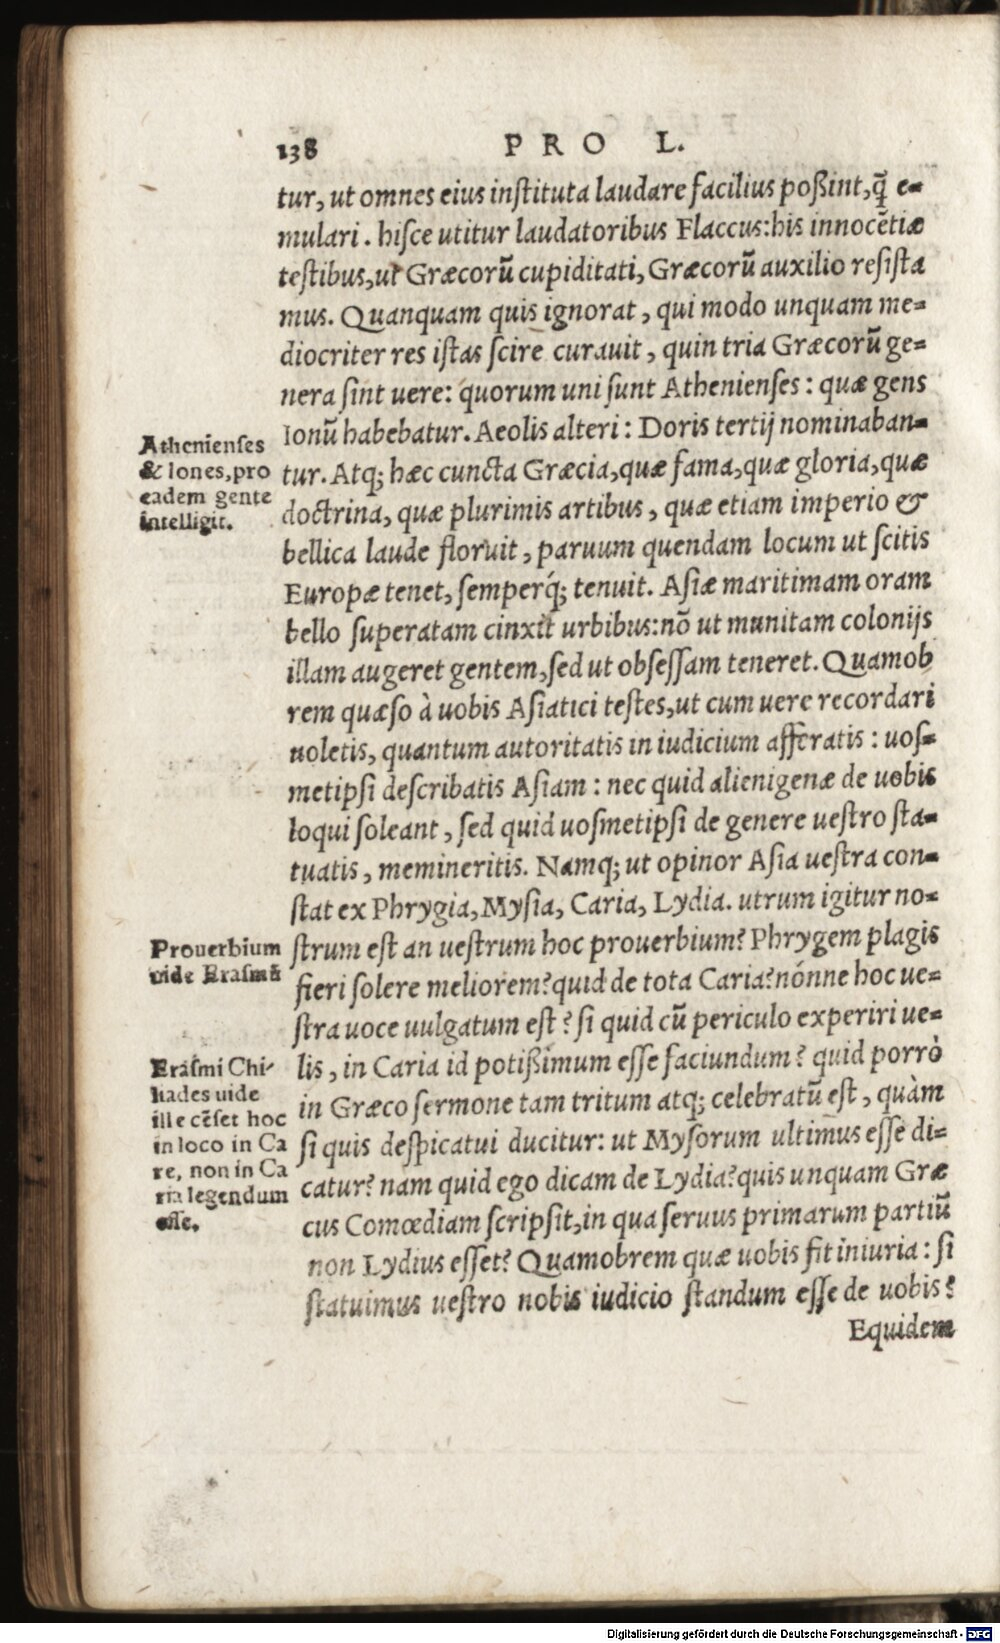 138 PRO L.
tur, ut omnes eius instituta laudare facilius poßint, q̃ e-
mulari. hisce utitur laudatoribus Flaccus: his innocẽtiæ
testibus, ut Græcorũ cupiditati, Græcorũ auxilio resista
mus. Quanquam quis ignorat, qui modo unquam me-
diocriter res istas scire curauit, quin tria Græcorũ ge-
nera sint uere: quorum uni sunt Athenienses: quæ gens
Ionũ habebatur. Aeolis alteri: Doris tertij nominaban-
tur. Atq; hæc cuncta Græcia, quæ fama, quæ gloria, quæ
doctrina, quæ plurimis artibus, quæ etiam imperio &
bellica laude floruit, paruum quendam locum ut scitis
Europæ tenet, semperq́; tenuit. Asiæ maritimam oram
bello superatam cinxit urbibus: nõ ut munitam colonijs
illam augeret gentem, sed ut obsessam teneret. Quamob
rem quæso à uobis Asiatici testes, ut cum uere recordari
uoletis, quantum autoritatis in iudicium afferatis: uos-
metipsi describatis Asiam: nec quid alienigenæ de uobis
loqui soleant, sed quid uosmetipsi de genere uestro sta-
tuatis, memineritis. Namq; ut opinor Asia uestra con-
stat ex Phrygia, Mysia, Caria, Lydia. utrum igitur no-
strum est an uestrum hoc prouerbium? Phrygem plagis
fieri solere meliorem? quid de tota Caria? nónne hoc ue-
stra uoce uulgatum est? si quid cũ periculo experiri ue-
lis, in Caria id potißimum esse faciundum? quid porrò
in Græco sermone tam tritum atq; celebratũ est, quàm
si quis despicatui ducitur: ut Mysorum ultimus esse di-
catur? nam quid ego dicam de Lydia? quis unquam Græ
cus Comœdiam scripsit, in qua seruus primarum partiũ
non Lydius esset? Quamobrem quæ uobis fit iniuria: si
statuimus uestro nobis iudicio standum esse de uobis?
Equidem
Athenienses
& Iones, pro
eadem gente
intelligit.
Prouerbium
uide Erasmũ
Erasmi Chi-
liades uide
ille cẽset hoc
in loco in Ca
re, non in Ca
ria legendum
esse.
Digitalisierung gefördert durch die Deutsche Forschungsgemeinschaft - DFG